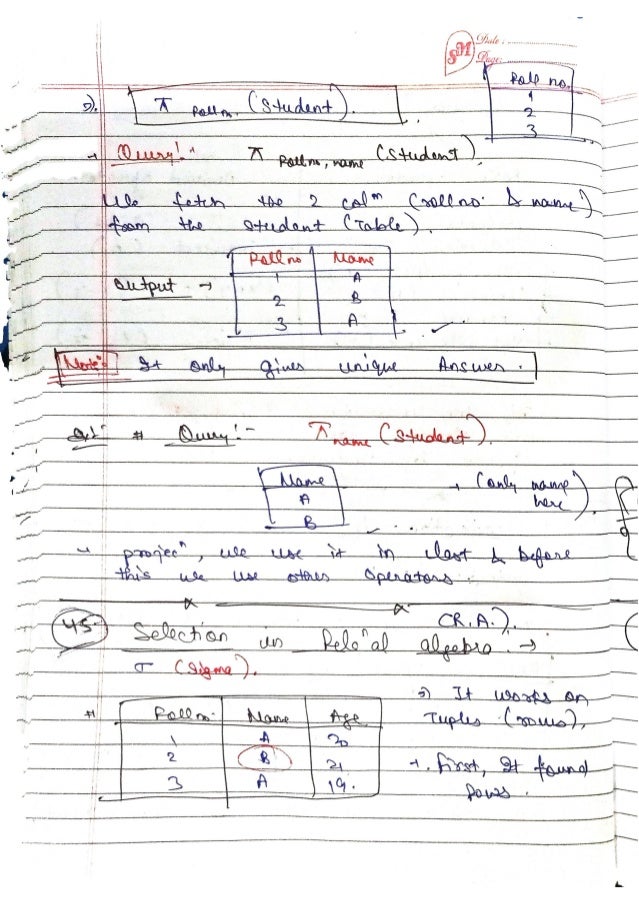 Date :
SM Page:
Roll no.
1
2
3
π Roll no. (Student).
Query:- π Roll no, name (Student).
We fetch the 2 colⁿ (roll no. & name)
from the student (Table).
Output →
Roll no Name
1 A
2 B
3 A
Note:- It only gives unique Answer.
Q.1:- # Query:- π name (Student).
Name
A
B
→ (only name here).
projecⁿ, we use it in last & before
this we use other operators.
45. Selection in Relaⁿal algebra (R.A.). →
σ (Sigma).
# Roll no. Name Age
1 A 20
2 B 21
3 A 19.
It works on
Tuples (rows).
→. first, It found
rows.